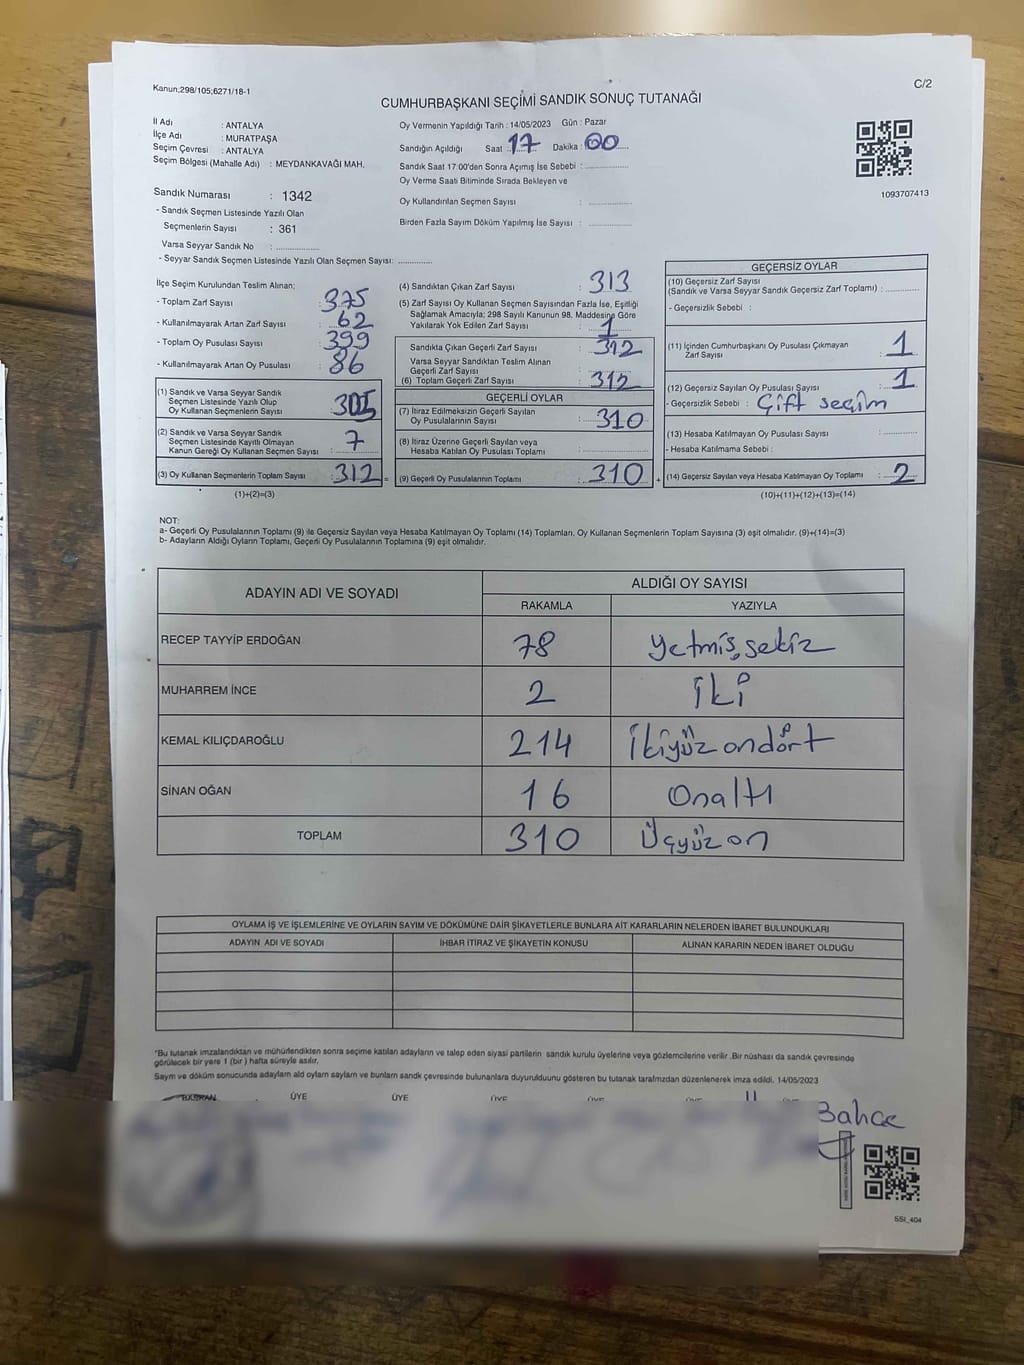 Kanun:298/105;6271/18-1
C/2
CUMHURBAŞKANI SEÇİMİ SANDIK SONUÇ TUTANAĞI
İl Adı : ANTALYA
İlçe Adı : MURATPAŞA
Seçim Çevresi : ANTALYA
Seçim Bölgesi (Mahalle Adı) : MEYDANKAVAĞI MAH.
Sandık Numarası : 1342
- Sandık Seçmen Listesinde Yazılı Olan
Seçmenlerin Sayısı : 361
Varsa Seyyar Sandık No : ..............
- Seyyar Sandık Seçmen Listesinde Yazılı Olan Seçmen Sayısı: ............
Oy Vermenin Yapıldığı Tarih : 14/05/2023 Gün : Pazar
Sandığın Açıldığı Saat : 17 Dakika : 00
Sandık Saat 17:00'den Sonra Açımış İse Sebebi : ..............
Oy Verme Saati Bitiminde Sırada Bekleyen ve
Oy Kullandırılan Seçmen Sayısı : ..............
Birden Fazla Sayım Döküm Yapılmış İse Sayısı : ..............
1093707413
İlçe Seçim Kurulundan Teslim Alınan;
- Toplam Zarf Sayısı : 375
- Kullanılmayarak Artan Zarf Sayısı : 62
- Toplam Oy Pusulası Sayısı : 399
- Kullanılmayarak Artan Oy Pusulası : 86
(1) Sandık ve Varsa Seyyar Sandık
Seçmen Listesinde Yazılı Olup
Oy Kullanan Seçmenlerin Sayısı :
(2) Sandık ve Varsa Seyyar Sandık
Seçmen Listesinde Kayıtlı Olmayan
Kanun Gereği Oy Kullanan Seçmen Sayısı : 7
(3) Oy Kullanan Seçmenlerin Toplam Sayısı : 312 =
(1)+(2)=(3)
(4) Sandıktan Çıkan Zarf Sayısı : 313
(5) Zarf Sayısı Oy Kullanan Seçmen Sayısından Fazla İse, Eşitliği
Sağlamak Amacıyla; 298 Sayılı Kanunun 98. Maddesine Göre
Yakılarak Yok Edilen Zarf Sayısı : 1
Sandıkta Çıkan Geçerli Zarf Sayısı : 312
Varsa Seyyar Sandıktan Teslim Alınan
Geçerli Zarf Sayısı :
(6) Toplam Geçerli Zarf Sayısı : 312
GEÇERLİ OYLAR
(7) İtiraz Edilmeksizin Geçerli Sayılan
Oy Pusulalarının Sayısı : 310
(8) İtiraz Üzerine Geçerli Sayılan veya
Hesaba Katılan Oy Pusulası Toplamı : ..............
(9) Geçerli Oy Pusulalarının Toplamı : 310 +
GEÇERSİZ OYLAR
(10) Geçersiz Zarf Sayısı
(Sandık ve Varsa Seyyar Sandık Geçersiz Zarf Toplamı) : ............
- Geçersizlik Sebebi :
(11) İçinden Cumhurbaşkanı Oy Pusulası Çıkmayan
Zarf Sayısı : 1
(12) Geçersiz Sayılan Oy Pusulası Sayısı : 1
- Geçersizlik Sebebi : Çift seçim
(13) Hesaba Katılmayan Oy Pusulası Sayısı : ............
- Hesaba Katılmama Sebebi :
(14) Geçersiz Sayılan veya Hesaba Katılmayan Oy Toplamı : 2
(10)+(11)+(12)+(13)=(14)
NOT:
a- Geçerli Oy Pusulalarının Toplamı (9) ile Geçersiz Sayılan veya Hesaba Katılmayan Oy Toplamı (14) Toplamları, Oy Kullanan Seçmenlerin Toplam Sayısına (3) eşit olmalıdır. (9)+(14)=(3)
b- Adayların Aldığı Oyların Toplamı, Geçerli Oy Pusulalarının Toplamına (9) eşit olmalıdır.
ADAYIN ADI VE SOYADI
ALDIĞI OY SAYISI
RAKAMLA YAZIYLA
RECEP TAYYİP ERDOĞAN 78 Yetmişsekiz
MUHARREM İNCE 2 İki
KEMAL KILIÇDAROĞLU 214 İkiyüz ondört
SİNAN OĞAN 16 Onaltı
TOPLAM 310 Üçyüz on
OYLAMA İŞ VE İŞLEMLERİNE VE OYLARIN SAYIM VE DÖKÜMÜNE DAİR ŞİKAYETLERLE BUNLARA AİT KARARLARIN NELERDEN İBARET BULUNDUKLARI
ADAYIN ADI VE SOYADI İHBAR İTİRAZ VE ŞİKAYETİN KONUSU ALINAN KARARIN NEDEN İBARET OLDUĞU
*Bu tutanak imzalandıktan ve mühürlendikten sonra seçime katılan adayların ve talep eden siyasi partilerin sandık kurulu üyelerine veya gözlemcilerine verilir .Bir nüshası da sandık çevresinde
görülecek bir yere 1 (bir ) hafta süreyle asılır.
Sayım ve döküm sonucunda adayların ald oyların sayların ve bunların sandk çevresinde bulunanlara duyurulduunu gösteren bu tutanak tarafmzdan düzenlenerek imza edildi. 14/05/2023
BAŞKAN ÜYE ÜYE ÜYE ÜYE ÜYE ÜYE
Bahçe
SSI_404